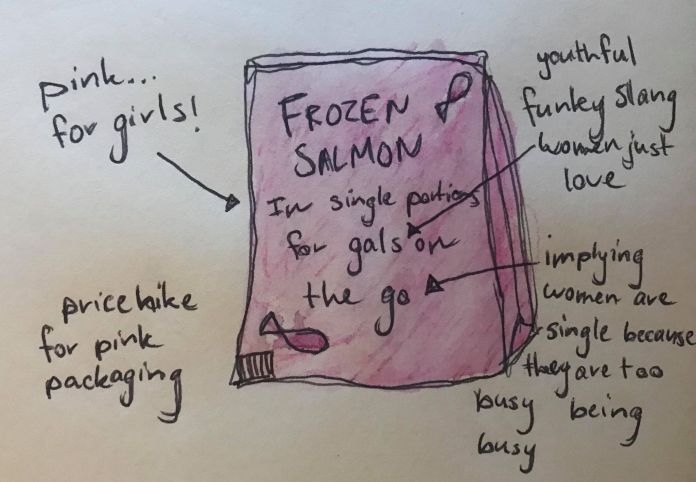 pink...
for girls!
FROZEN
SALMON
In single portions
for gals on
the go
youthful
funky slang
women just
love
implying
women are
single because
they are too
busy being
busy
price hike
for pink
packaging